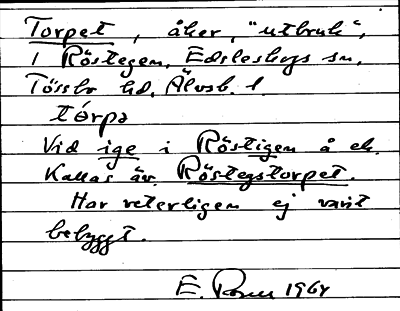 Torpet, åker, "utbruk",
i Röstegen, Edsleskogs sn,
Tössbo hd, Älvsb. l.
tórpə
Vid ige i Röstigen å ek.
Kallas äv. Röstegstorpet.
Har veterligen ej varit
bebyggt.
E. 1964